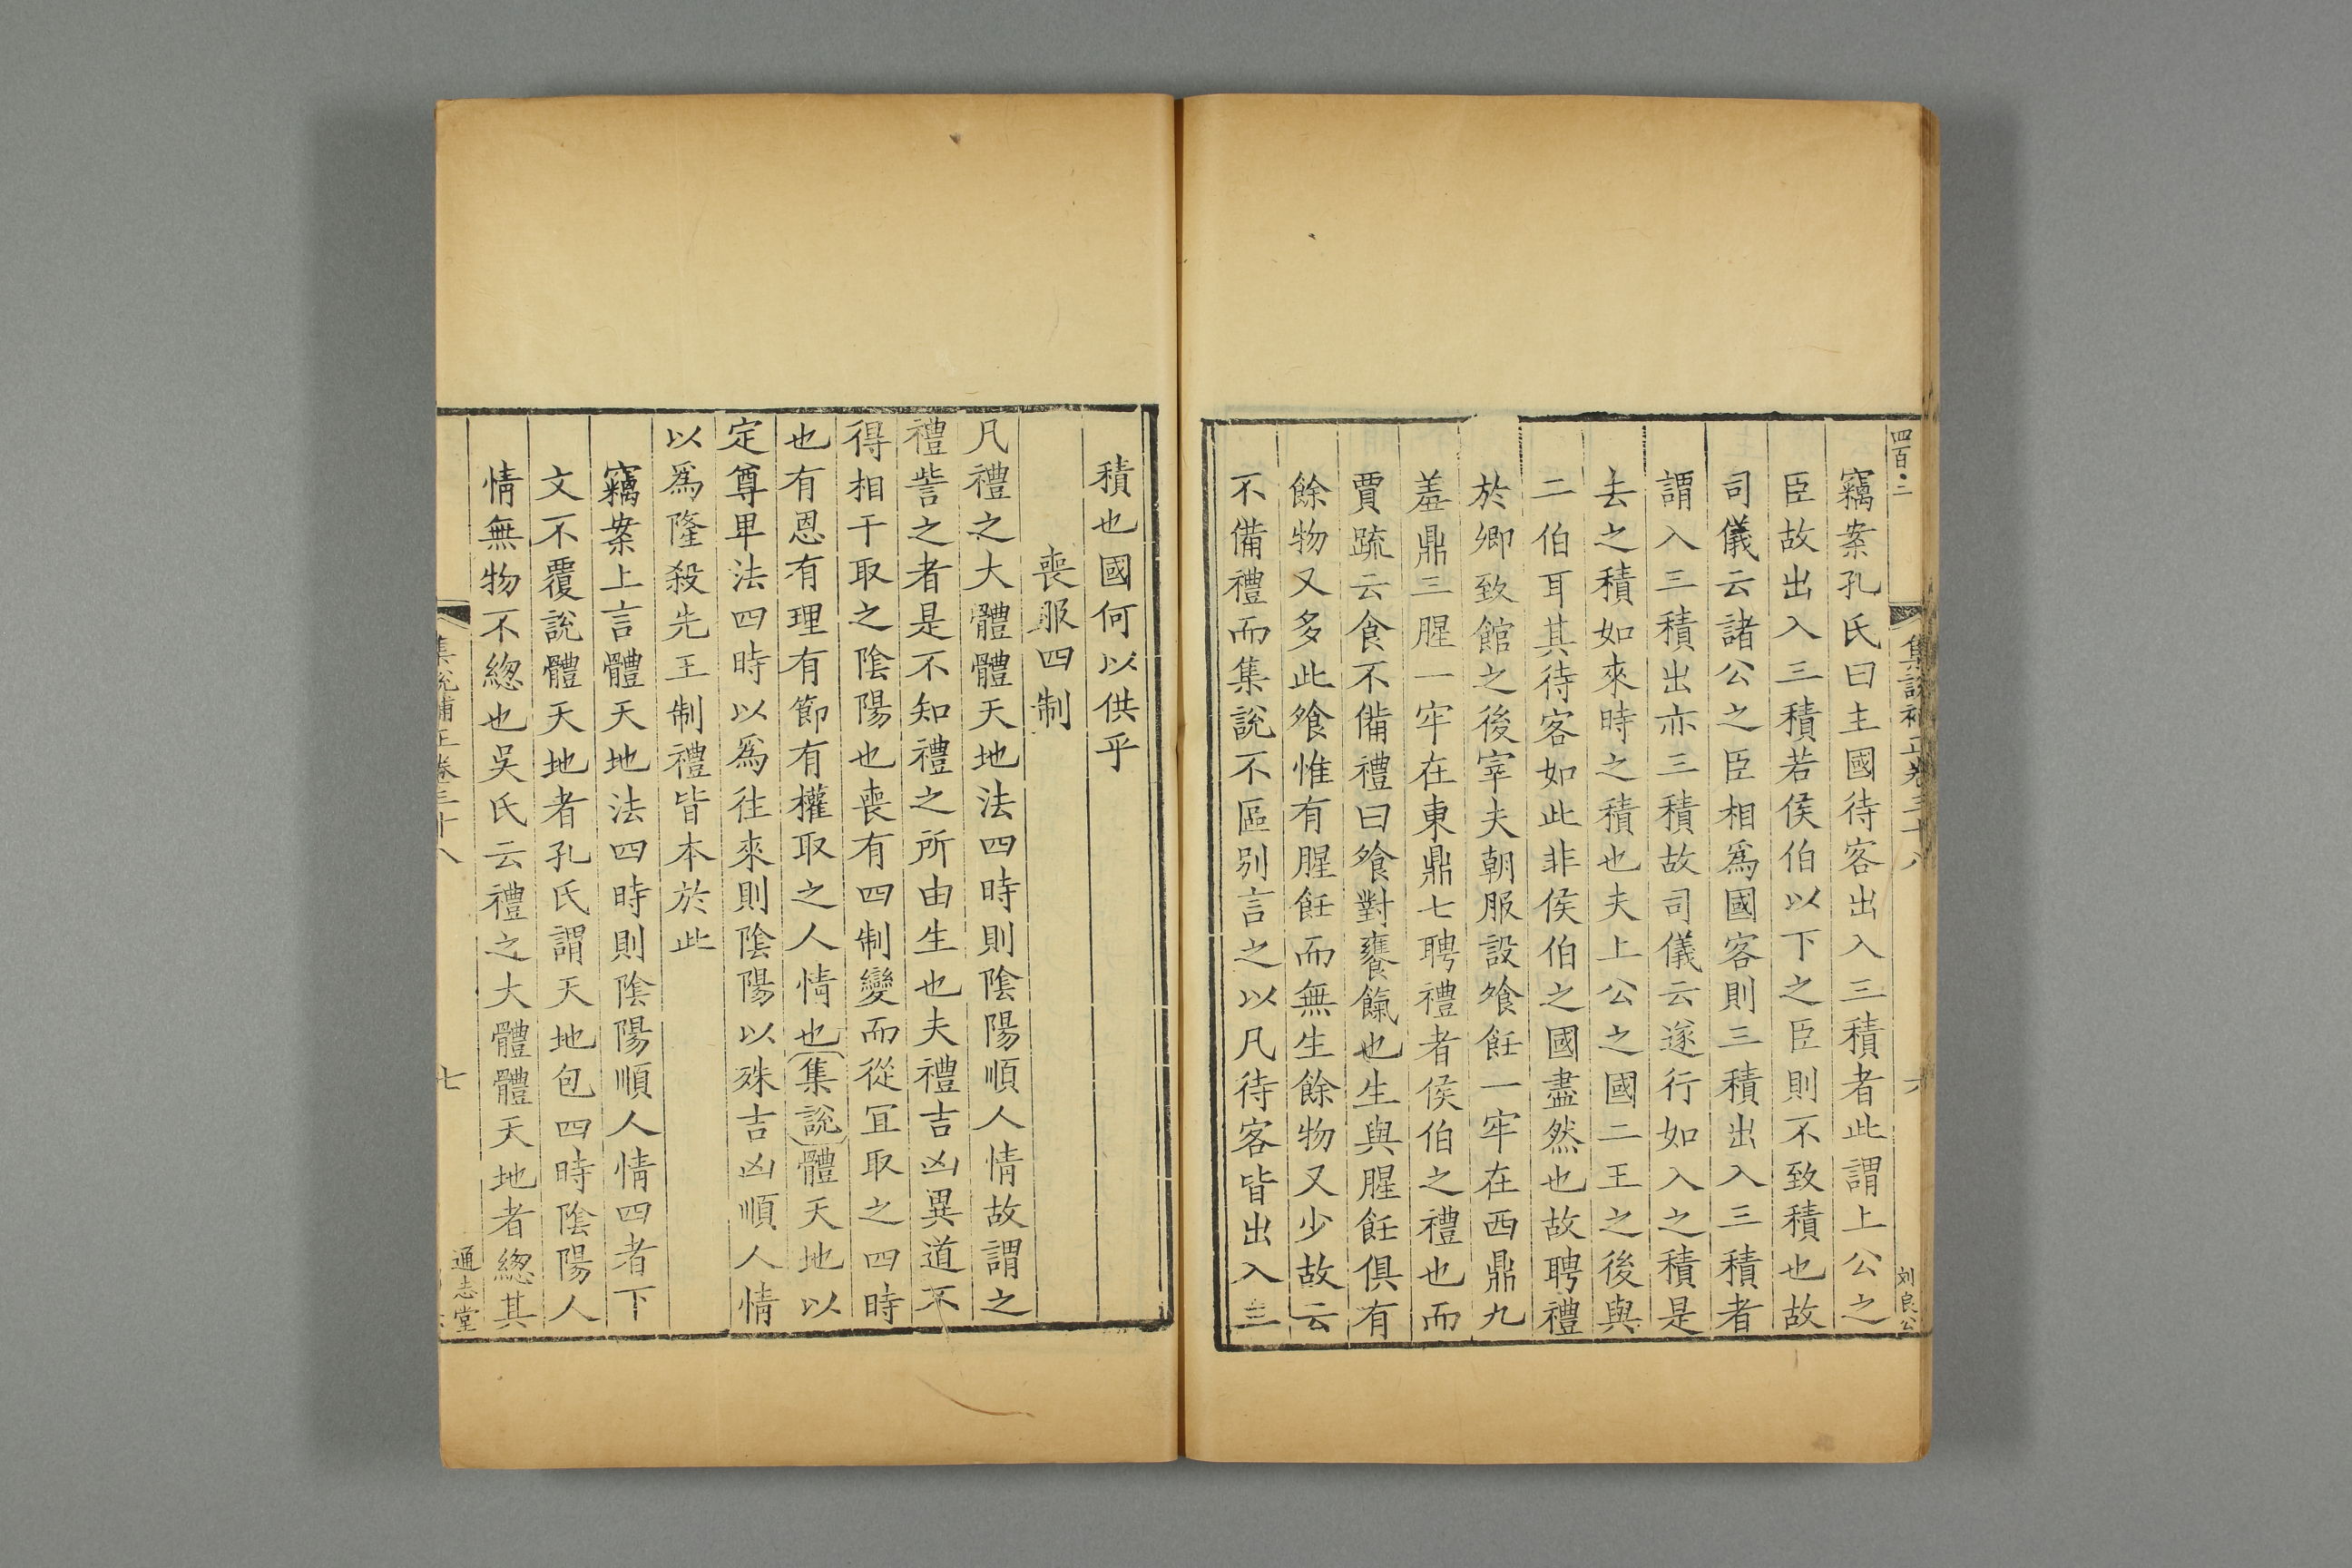 四百二
集說補正卷三十八
六
刘良公
竊案孔氏曰主國待客出入三積者此謂上公之
臣故出入三積若侯伯以下之臣則不致積也故
司儀云諸公之臣相爲國客則三積出入三積者
謂入三積出亦三積故司儀云遂行如入之積是
去之積如來時之積也夫上公之國二王之後與
二伯耳其待客如此非侯伯之國盡然也故聘禮
於卿致館之後宰夫朝服設飧飪一牢在西鼎九
羞鼎三腥一牢在東鼎七聘禮者侯伯之禮也而
賈疏云食不備禮曰飧對饔餼也生與腥飪俱有
餘物又多此飧惟有腥飪而無生餘物又少故云
不備禮而集說不區别言之以凡待客皆出入三
積也國何以供乎
喪服四制
凡禮之大體體天地法四時則陰陽順人情故謂之
禮訾之者是不知禮之所由生也夫禮吉凶異道不
得相干取之陰陽也喪有四制變而從冝取之四時
也有恩有理有節有權取之人情也集說體天地以
定尊卑法四時以爲徃來則陰陽以殊吉凶順人情
以爲隆殺先王制禮皆本於此
竊案上言體天地法四時則陰陽順人情四者下
文不覆說體天地者孔氏謂天地包四時陰陽人
情無物不緫也吳氏云禮之大體體天地者緫其
集說補正卷三十八
七
通志堂